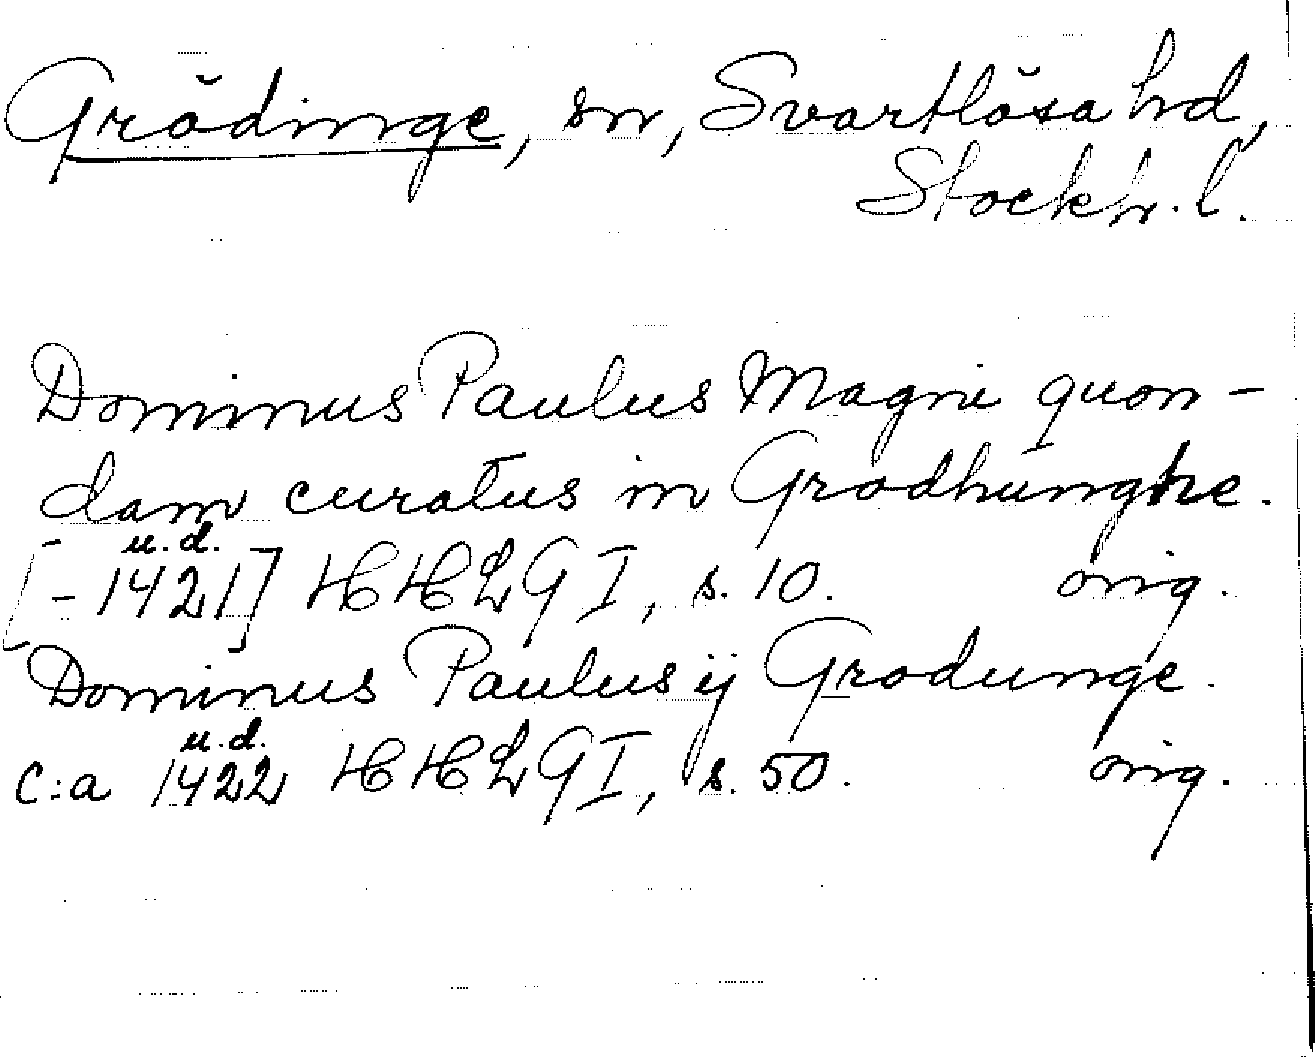 Grödinge, sn, Svartlösa hd,
Stockh. l.
Dominus Paulus Magni quon-
dam curatus in Grodhunghe.
u.d.
[-1421] HHLG I, s. 10. orig.
Dominus Paulus ij Grodunge.
u.d.
c:a 1422 HHLG I, s. 50. orig.